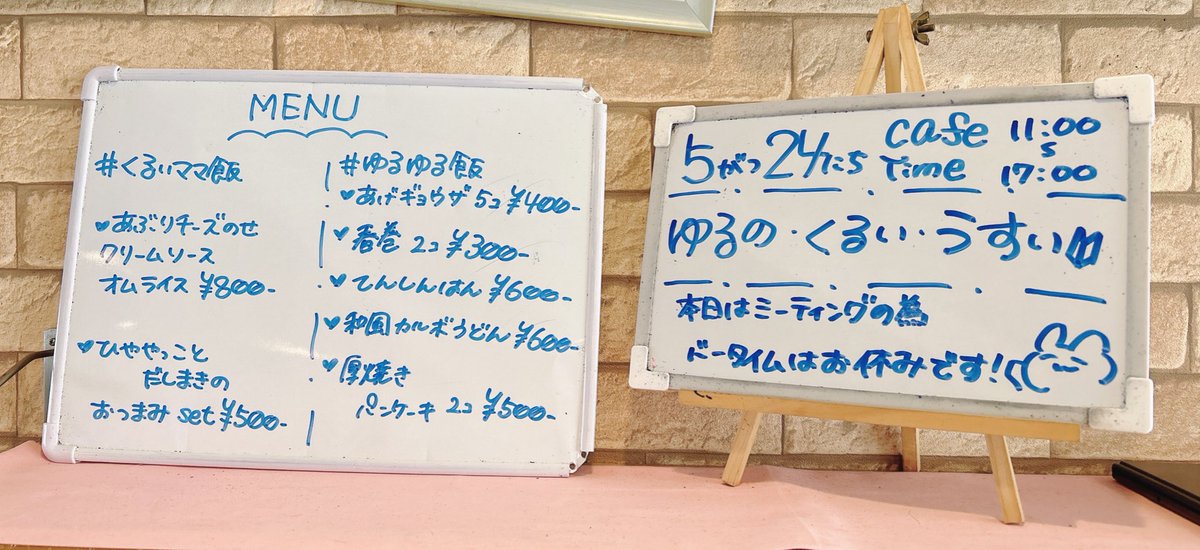 MENU
#くるいママ飯
♥あぶりチーズのせ
クリームソース
オムライス ¥800-
♥ひややっこと
だしまきの
おつまみ set ¥500-
#ゆるゆる飯
♥あげギョウザ 5コ ¥400-
♥春巻 2コ ¥300-
♥てんしんはん ¥600-
♥和風カルボうどん ¥600-
♥厚焼き
パンケーキ 2コ ¥500-
5がつ24にち
cafe Time
11:00
s
17:00
ゆるの・くるい・うすい
本日はミーティングの為
ドータイムはお休みです!